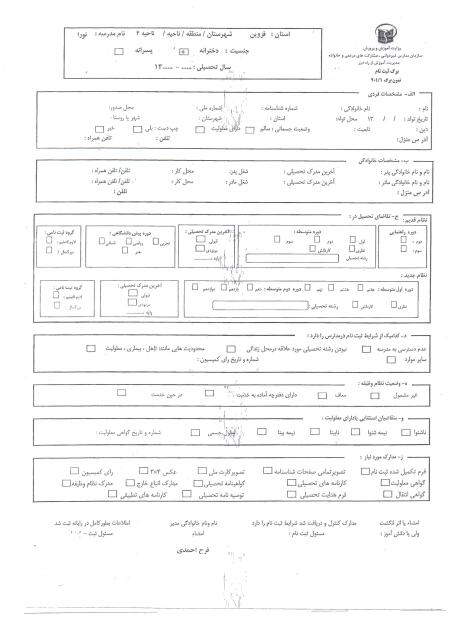 وزارت آموزش و پرورش
سازمان مدارس غیردولتی ، مشارکت های مردمی و خانواده
مدیریت آموزش از راه دور
برگ ثبت نام
استان : قزوین شهرستان / منطقه / ناحیه / ناحیه ۲ نام مدرسه : نور
جنسیت : دخترانه پسرانه
سال تحصیلی :
الف- مشخصات فردی
نام : نام خانوادگی : شماره شناسنامه : شماره ملی : محل صدور:
تاریخ تولد : / / ۱۳ محل تولد: استان : شهرستان : شهر یا روستا :
دین : تابعیت : وضعیت جسمانی : سالم دارای معلولیت چپ دست : بلی خیر
آدرس منزل: تلفن :
ب- مشخصات خانوادگی
نام و نام خانوادگی پدر : آخرین مدرک تحصیلی : شغل پدر: محل کار : تلفن/ تلفن همراه :
نام و نام خانوادگی مادر : آخرین مدرک تحصیلی : شغل مادر: محل کار : تلفن/ تلفن همراه :
آدرس منزل : تلفن :
ج- تقاضای تحصیل در :
نظام قدیم:
دوره راهنمایی دوره متوسطه : آخرین مدرک تحصیلی : دوره پیش دانشگاهی :
اول دوم سوم قبولی تجربی ریاضی انسانی
نظری کاردانش مردودی هنر
رشته تحصیلی پایه
نظام جدید :
دوره اول متوسطه : هفتم هشتم نهم دوره دوم متوسطه : دهم یازدهم دوازدهم آخرین مدرک تحصیلی :
نظری کاردانش رشته تحصیلی : قبولی
مردودی
پایه
د- کدامیک از شرایط ثبت نام درمدارس را دارد :
عدم دسترسی به مدرسه نبودن رشته تحصیلی مورد علاقه درمحل زندگی محدودیت هایی مانند: تاهل ، بیماری ، معلولیت
سایر موارد شماره و تاریخ رای کمیسیون :
ه- وضعیت نظام وظیفه :
غیر مشمول معاف دارای دفترچه آماده به خدمت در حین خدمت
و- متقاضیان استثنایی یادارای معلولیت :
ناشنوا نیمه شنوا نابینا نیمه بینا معلول جسمی شماره و تاریخ گواهی معلولیت :
ز- مدارک مورد نیاز :
فرم تکمیل شده ثبت نام تصویرتمامی صفحات شناسنامه تصویرکارت ملی عکس ۴×۳ رای کمیسیون
گواهی معلولیت کارنامه های تحصیلی گواهینامه تحصیلی مدارک اتباع خارج مدرک نظام وظیفه
گواهی انتقال فرم هدایت تحصیلی توصیه نامه تحصیلی کارنامه های تطبیقی
امضاء یا اثر انگشت مدارک کنترل و دریافت شد شرایط ثبت نام را دارد : نام ونام خانوادگی مدیر اطلاعات بطورکامل در رایانه ثبت شد
ولی یا دانش آموز : مسئول ثبت نام : امضاء مسئول ثبت
فرح احمدی